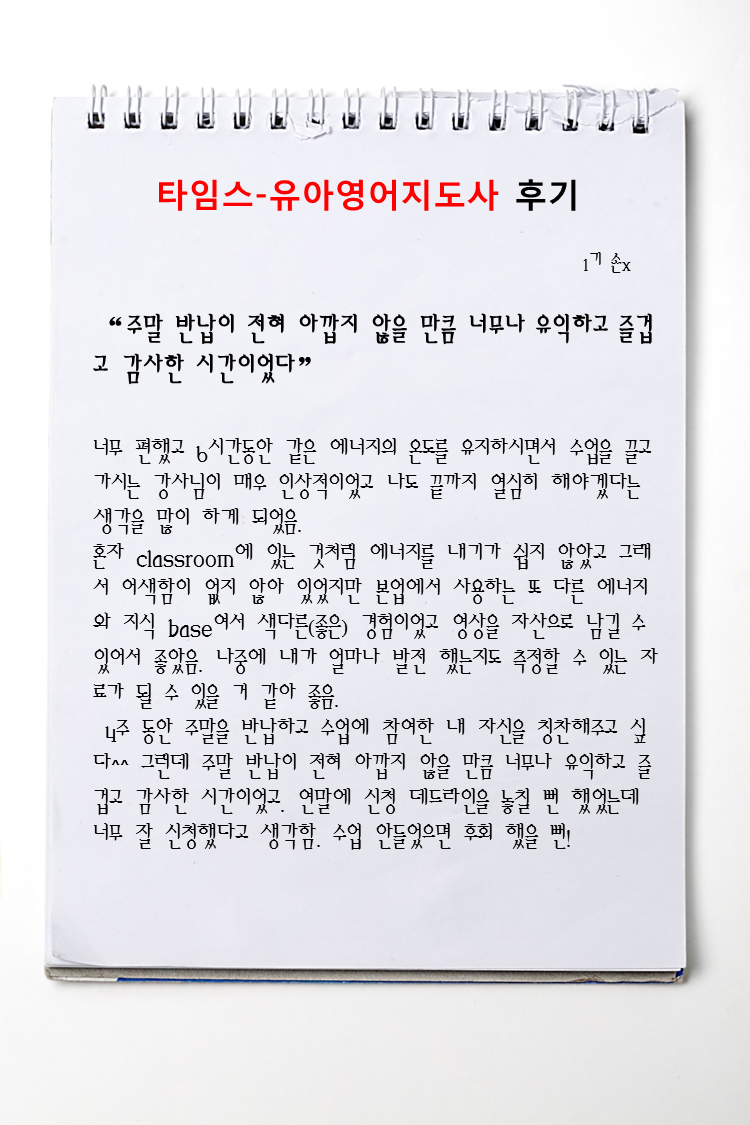 타임스-유아영어지도사 후기
1기 손x
“주말 반납이 전혀 아깝지 않을 만큼 너무나 유익하고 즐겁
고 감사한 시간이었다”
너무 편했고 6시간동안 같은 에너지의 온도를 유지하시면서 수업을 끌고
가시는 강사님이 매우 인상적이었고 나도 끝까지 열심히 해야겠다는
생각을 많이 하게 되었음.
혼자 classroom에 있는 것처럼 에너지를 내기가 쉽지 않았고 그래
서 어색함이 없지 않아 있었지만 본업에서 사용하는 또 다른 에너지
와 지식 base여서 색다른(좋은) 경험이었고 영상을 자산으로 남길 수
있어서 좋았음. 나중에 내가 얼마나 발전 했는지도 측정할 수 있는 자
료가 될 수 있을 거 같아 좋음.
4주 동안 주말을 반납하고 수업에 참여한 내 자신을 칭찬해주고 싶
다^^ 그런데 주말 반납이 전혀 아깝지 않을 만큼 너무나 유익하고 즐
겁고 감사한 시간이었고. 연말에 신청 데드라인을 놓칠 뻔 했었는데
너무 잘 신청했다고 생각함. 수업 안들었으면 후회 했을 뻔!